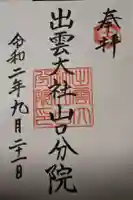 奉拝
出雲大社山口分院
令和二年九月二十二日